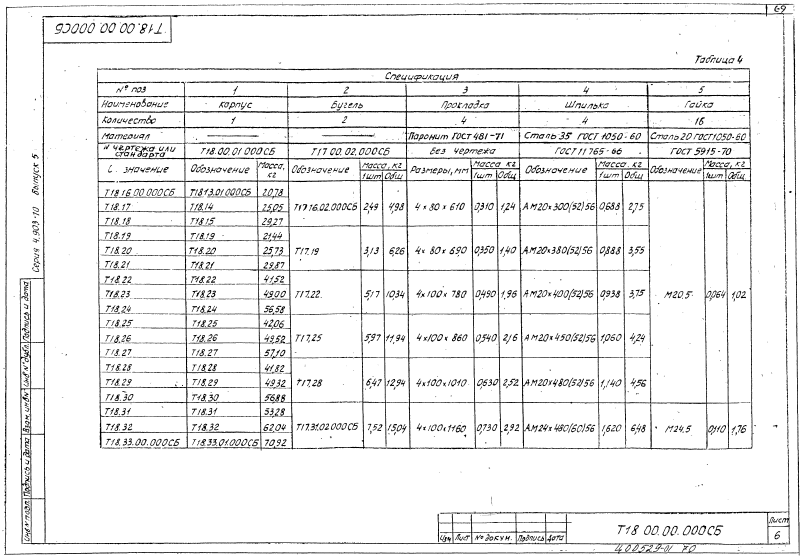 69
Т18.00.00.000СБ
Таблица 4
Спецификация
№ поз 1 2 3 4 5
Наименование Корпус Бугель Прокладка Шпилька Гайка
Количество 1 2 4 4 16
Материал Паронит ГОСТ 481-71 Сталь 35 ГОСТ 1050-60 Сталь 20 ГОСТ 1050-60
№ чертежа или стандарта Т18.00.01.000СБ Т17.00.02.000СБ Без чертежа ГОСТ 11765-66 ГОСТ 5915-70
Обозначение Масса, кг Обозначение Масса, кг 1шт Общ Размеры, мм Масса, кг 1шт Общ Обозначение Масса, кг 1шт Общ Обозначение Масса, кг 1шт Общ
Т18.16.00.000СБ Т18.13.01.000СБ 20,78
Т18.17 Т18.14 25,05 Т17.16.02.000СБ 2,49 4,98 4×80×610 0,310 1,24 АМ20×300(52)56 0,688 2,75
Т18.18 Т18.15 29,27
Т18.19 Т18.19 21,44
Т18.20 Т18.20 25,73 Т17.19 3,13 6,26 4×80×690 0,350 1,40 АМ20×380(52)56 0,888 3,55
Т18.21 Т18.21 29,87
Т18.22 Т18.22 41,52
Т18.23 Т18.23 49,00 Т17.22 5,17 10,34 4×100×780 0,490 1,96 АМ20×400(52)56 0,938 3,75 М20.5 0,064 1,02
Т18.24 Т18.24 56,58
Т18.25 Т18.25 42,06
Т18.26 Т18.26 49,52 Т17.25 5,97 11,94 4×100×860 0,540 2,16 АМ20×450(52)56 1,060 4,24
Т18.27 Т18.27 57,10
Т18.28 Т18.28 41,82
Т18.29 Т18.29 49,32 Т17.28 6,47 12,94 4×100×1010 0,630 2,52 АМ20×480(52)56 1,140 4,56
Т18.30 Т18.30 56,88
Т18.31 Т18.31 53,28
Т18.32 Т18.32 62,04 Т17.31.02.000СБ 7,52 15,04 4×100×1160 0,730 2,92 АМ24×480(60)56 1,620 6,48 М24.5 0,110 1,76
Т18.33.00.000СБ Т18.33.01.000СБ 70,92
Серия 4.903-10 Выпуск 5
Инв № подл. Подпись и дата Взам. инв № Инв № дубл. Подпись и дата
Изм Лист № докум. Подпись Дата
Т18.00.00.000СБ
Лист
6
400529-01 70